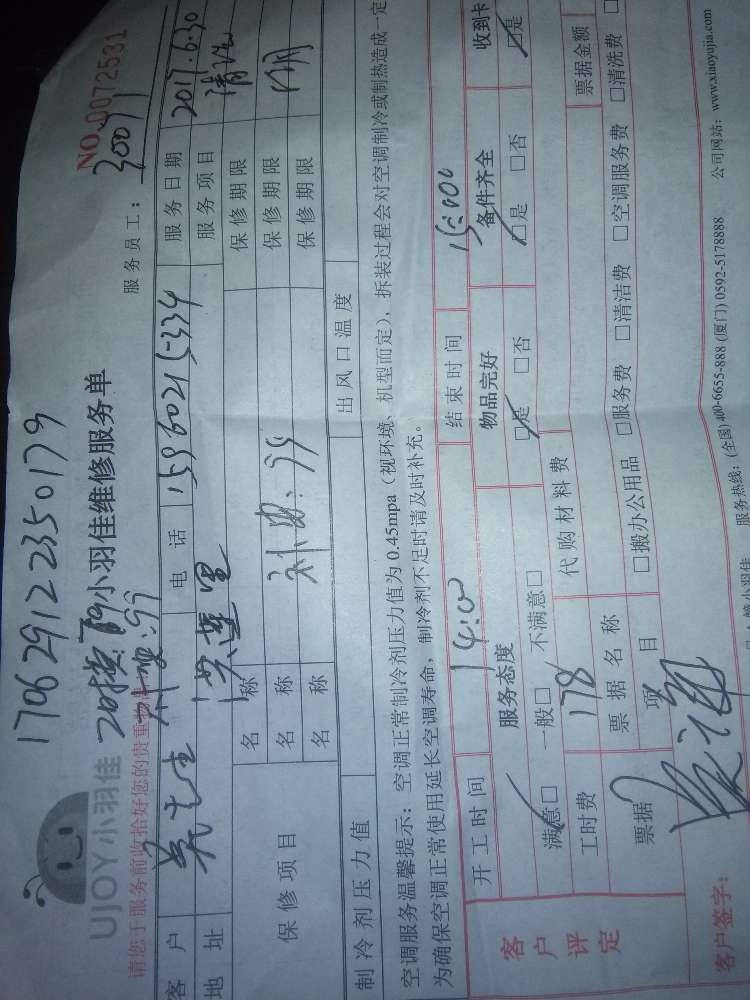 170629122350179
NO.0072531
UJOY小羽佳
小羽佳维修服务单
服务员工：
30091
请您于服务前收拾好您的贵重物
客户
吴先生
电话
15960215334
服务日期
2017.6.30
地址
洪莲里
服务项目
清洗
保修项目
名称
保修期限
名称
保修期限
名称
保修期限
制冷剂压力值
出风口温度
空调服务温馨提示：空调正常制冷剂压力值为0.45mpa（视环境、机型而定），拆装过程会对空调制冷或制热造成一定
为确保空调正常使用延长空调寿命，制冷剂不足时请及时补充。
开工时间
14:00
结束时间
15:00
客户评定
服务态度
物品完好
备件齐全
收到卡
满意□ 一般□ 不满意□
□是 □否
□是 □否
□是
工时费
178
代购材料费
票据
票据名称
票据金额
项目
□搬办公用品 □服务费 □清洁费 □空调服务费 □清洗费
客户签字：
服务热线：(全国)400-6655-888 (厦门)0592-5178888
公司网站：www.xiaoyujia.com